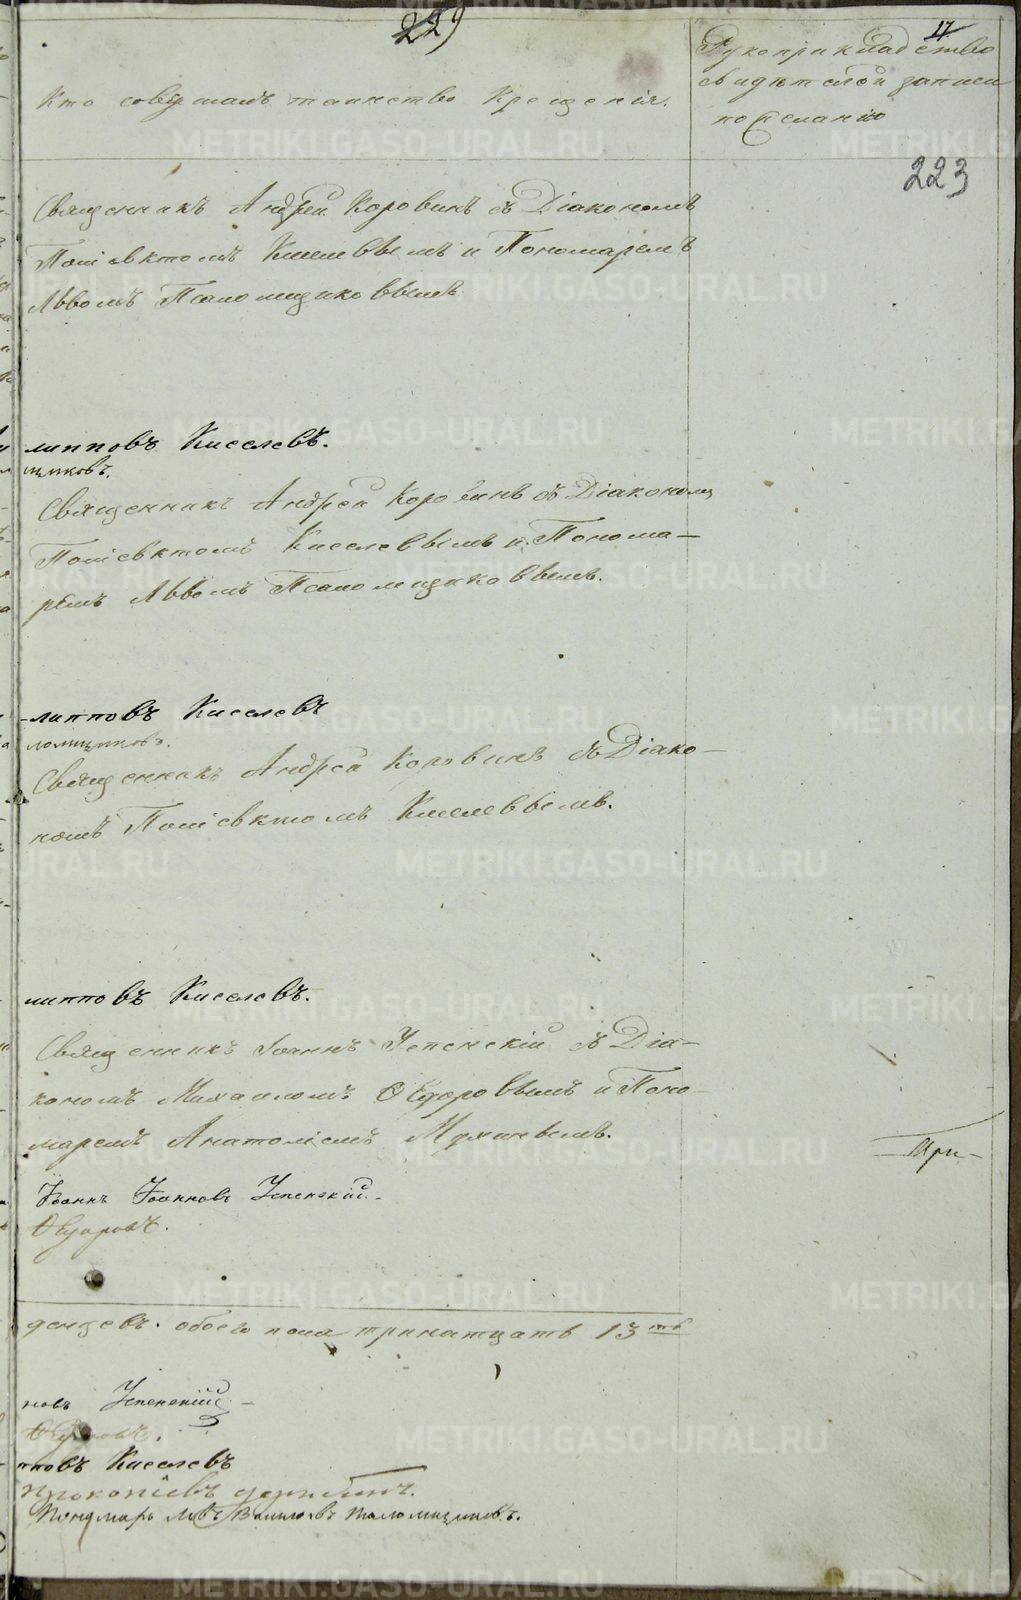 229
17
Кто совершалъ таинство Крещенія.
Рукоприкладство
свидѣтелей записи
по желанію
223
Священникъ Андрей Коровинъ съ Діакономъ
Поліевктомъ Киселевымъ и Пономаремъ
Львомъ Псаломщиковымъ
липповъ Киселевъ.
щиковъ.
Священникъ Андрей Коровинъ съ Діакономъ
Поліевктомъ Киселевымъ и Понома-
ремъ Львомъ Псаломщиковымъ.
-липповъ Киселевъ
ломщиковъ.
Священникъ Андрей Коровинъ съ Діако-
номъ Поліевктомъ Киселевымъ.
липповъ Киселевъ.
Священникъ Іоаннъ Успенскій съ Діа-
кономъ Михаиломъ Ѳедоровымъ и Поно-
маремъ Анатоліемъ Мухинымъ.
При-
Іоаннъ Іоанновъ Успенскій.
Ѳедоровъ.
денцевъ. обоего пола тринатцать 13ть
новъ Успенскій
Ѳедоровъ.
пповъ Киселевъ
Прокопіевъ
Пономарь Левъ Псаломщиковъ.
METRIKI.GASO-URAL.RU